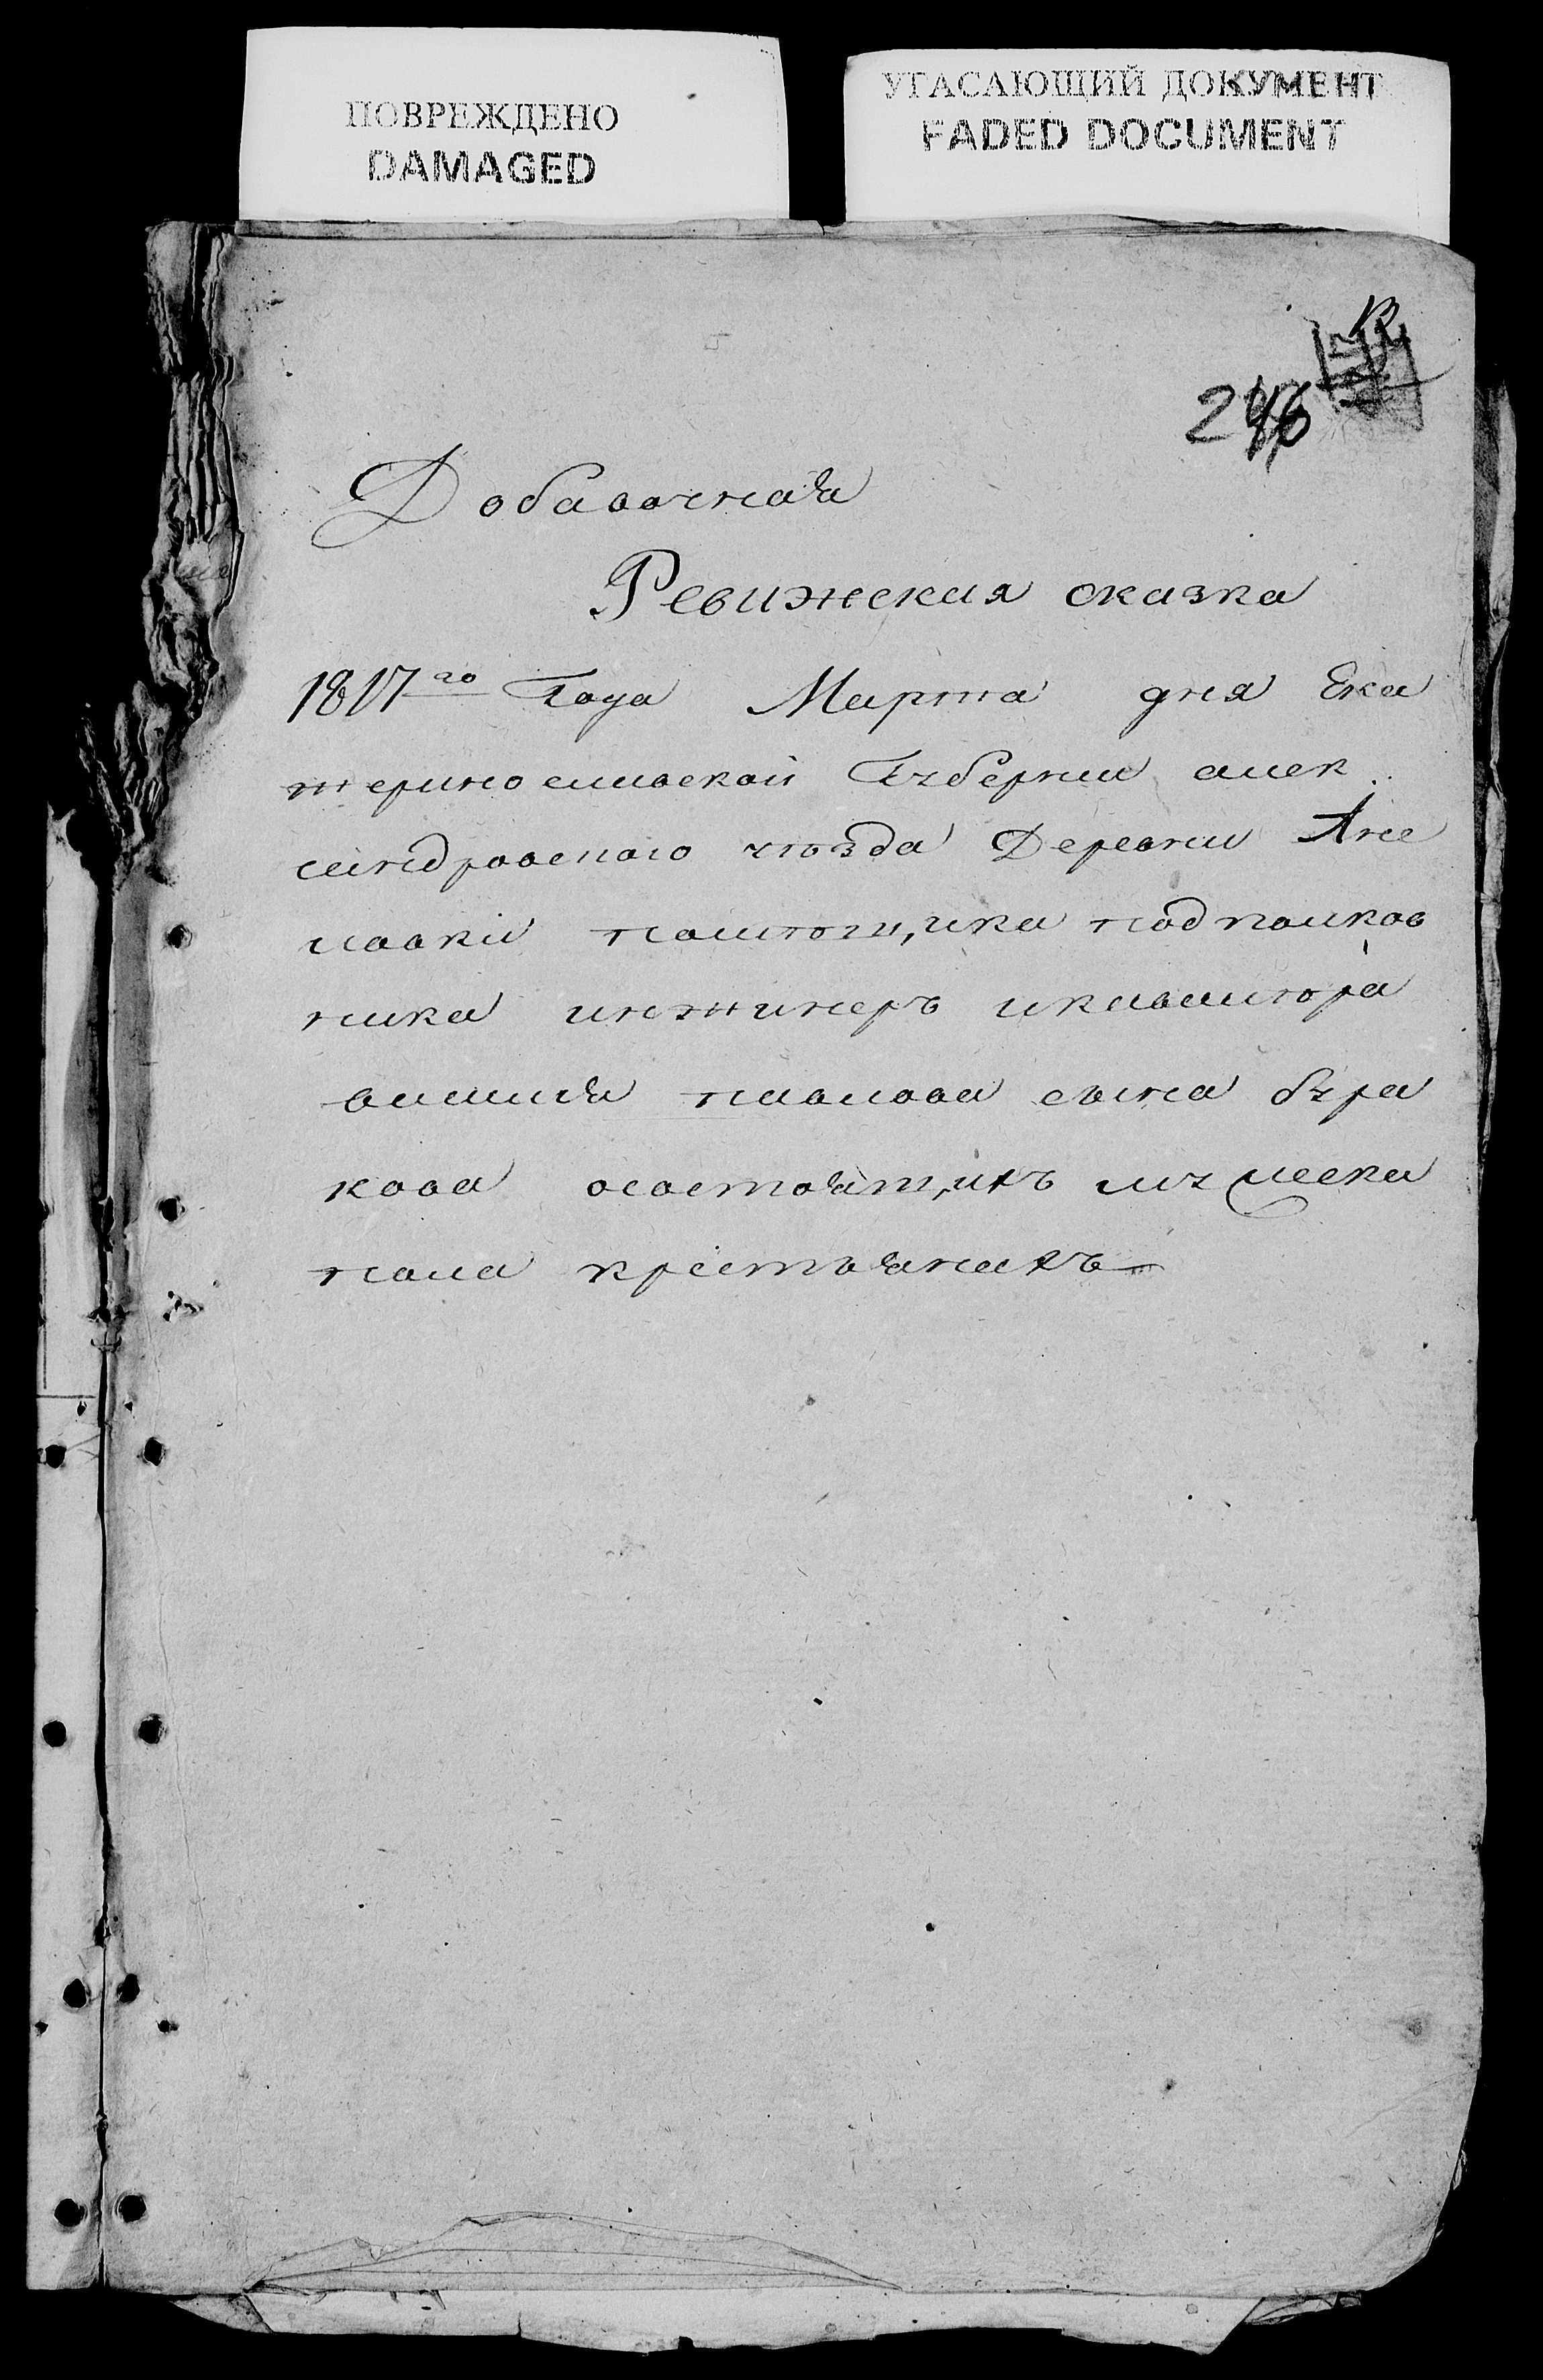 ПОВРЕЖДЕНО
DAMAGED
УГАСАЮЩИЙ ДОКУМЕНТ
FADED DOCUMENT
Добавочная
Ревижская сказка
1817го Года Марта дня Ека
теринославской Губернии алек
сандровского уѣзда Деревни
новки помѣщика подполков
ника инжинеръ икавалѣра
василия павлова сына бура
кова осостоящихъ муческа
пола крестьянахъ